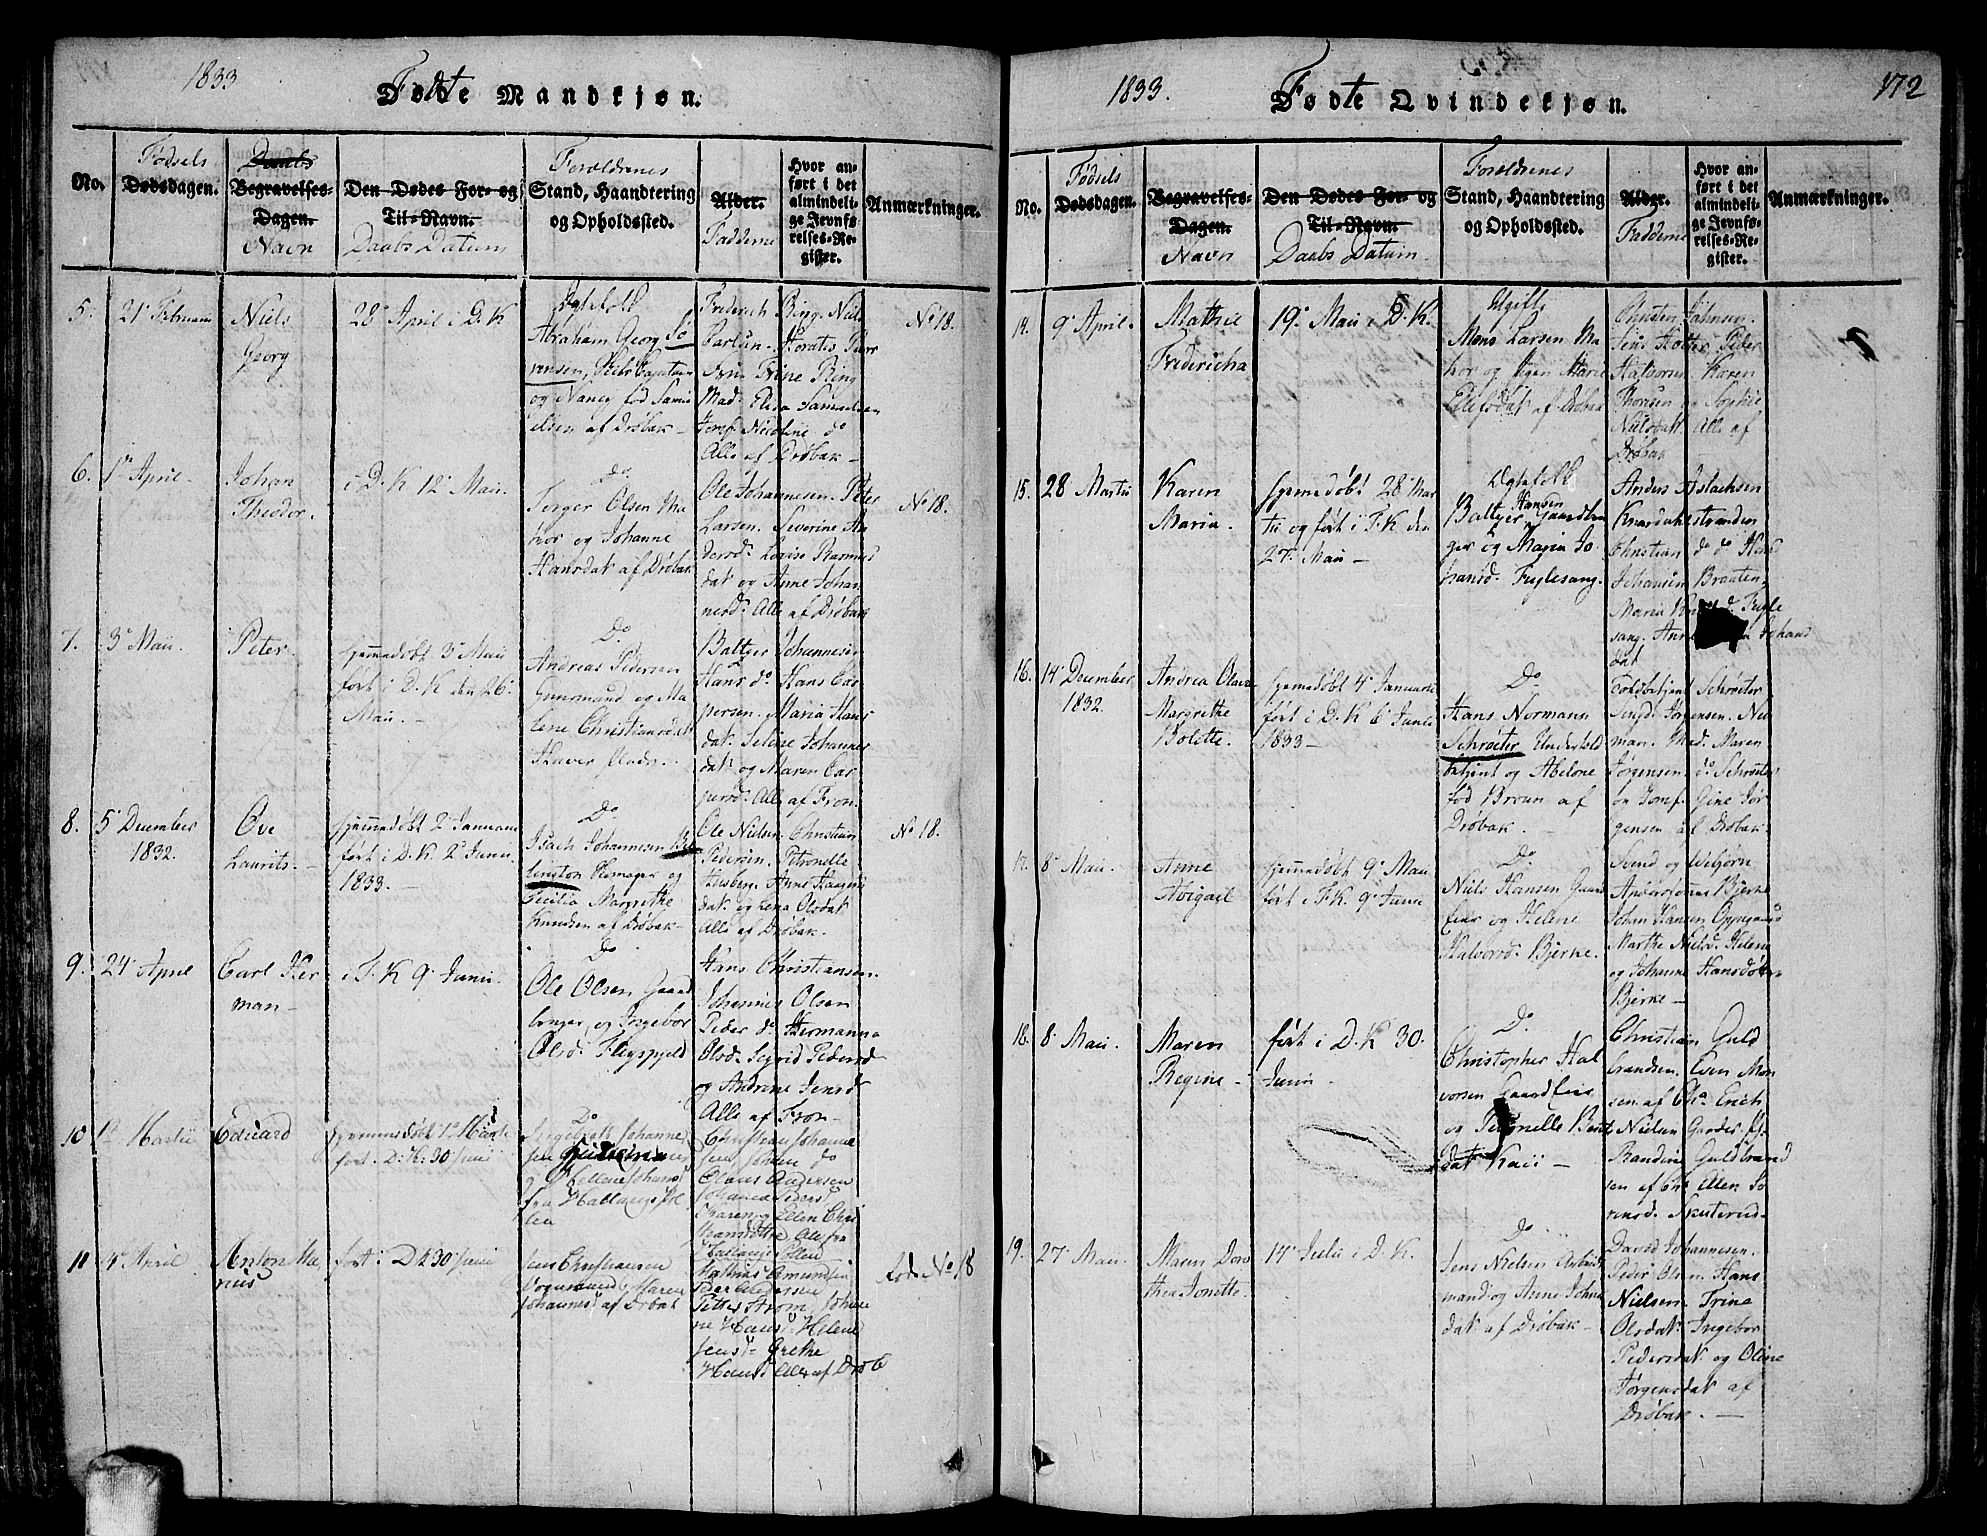 1833
Fødte Mandkjøn.
No.
Fødsels
Dødsdagen.
Daabs
Begravelses-
Dagen.
Navn
Den Dødes For- og
Til-Navn.
Daabs Datum
Foreldrenes
Stand, Haandtering
og Opholdssted.
Alder.
Fadderne
Hvor an-
ført i det
almindeli-
ge Jevnfø-
relses-Re-
gister.
Anmærkninger.
5.
21de Februari
Niels
Georg
28de April i D.K
Ægtefolk
Abraham Georg Sø
rensen, Skibs Capitain
og Nancy fød Samu
elsen af Drøbak -
Frederich Ring. Niels
Carlsen. Horatis
Trine Ring
Mad. Elisa Samuelsen
Jomf. Nicoline do
Alle af Drøbak -
No 18.
6.
1ste April.
Johan
Theodor.
i D.K 12te Mai.
Do
Torger Olsen Ma
tror og Johanne
Hansdat. af Drøbak
Ole Johannesen. Peter
Larsen. Severine An
dersd. Lovise Rasmus
dat. og Anne Johan
nesd. Alle af Drøbak
No 18.
7.
3de Mai.
Peter.
hjemmedøbt 3de Mai
ført i D.K den 26de
Mai. -
Do
Andreas Pedersen
og Ma
lene Christiansdat.
Baltzer Johannesen
Hans do Hans Cas
persen. Maria Hans
dat. Seline Johannes
dat. og Maren Cas
persd. Alle af Fron.
8.
5te December
1832.
Ove
Laurits. -
hjemmedøbt 2den Januari
ført i D.K. 2den Junii
1833. -
Do
Isach Johannesen
og
Cecilia Margrethe
Knudsen af Drøbak -
Ole Nielsen Christian
Pedersen. Petronelle
Husberg. Anne Haagens
dat. og Lena Olsdat.
Alle af Drøbak.
No 18.
9.
24de April
Carl Her
man -
i F.K 9de Junii.
Do
Ole Olsen Gaard
bruger og Ingebor
Olsd.
Hans Christiansen.
Johannes Olsen
Peder do Hermanna
Olsd. Sigrid Pedersd
og Andrine Jensd.
Alle af Fron -
10
1ste Martii
Eduard
hjemmedøbt 1ste Marti
ført i D:K: 30 Juni
Do
Johanne
sen
og Hellene Johansd
fra Hallangs Pol
len
Christian Johanne
sen Johan do
Claus Andersen
Johanne Pedersd
Maren og Ellen Chri
stiansdøttre Alle fra
Hallangspollen
11
4de April
Anton Ma
rius
ført i D K 30te Juni
Jens Christiansen
Vognmand, Maren
Johannesd. af Drøbak
Mathias Amundsen
Peder Andersen
Petter Strom, Johan
ne Hansd. Helene
Jensd. Grethe
Hansd. Alle af Drøb
No 18
1833.
Fødte Qvindekjøn.
172
No.
Fødsels
Dødsdagen.
Begravelses-
Dagen.
Navn
Den Dødes For- og
Til-Navn.
Daabs Datum.
Foreldrenes
Stand, Haandtering
og Opholdssted.
Alder.
Fadderne
Hvor an-
ført i det
almindeli-
ge Jevnfø-
relses-Re-
gister.
Anmærkninger.
14.
9de April.
Mathie
Fredericha
19de Maii i D.K.
Ugifte
Mons Larsen Ma
tror og Pigen Marie
Ellefsdat. af Drøbak
Christen Johnsen
Jens Holter Peder
Halvorsen Karen
Thorisen og Sophie
Nielsdat. Alle af
Drøbak
15.
28 Martii
Karen
Maria.
hjemmedøbt 28de Mar
tii og ført i F.K den
27de Mai -
Ægtefolk
Baltzer Hansen Gaardbru
ger og Maria Jo
hansd. Fuglesang.
Anders Aslachsen
Knardahlstranden
Christian do do Hans
Johansen Brauten
Maria do Fugle
sang. Johans
dat.
16.
14de December
1832.
Andrea Olava
Margrethe
Bolette.
hjemmedøbt 4de Januari
ført i D.K 6te Junii
1833 -
Do
Hans Normann
Schrøeter Undertold
betjent og Abelone
fød Bruun af
Drøbak.
Toldbetjent Schrøeter
Jørgensen. Nie
man. Mad. Maren
Jørgensen. do Schrøeter
og Jomf. Gine Jør
gensen af Drøbak.
17.
8de Mai.
Anne
Abigael
hjemmedøbt 9de Mai
ført i F.K. 9de Junii
Do
Niels Hansen Gaard
feier og Helene
Halvorsd. Bjerke.
Svend og Vebjørn
Anderssønner Bjerke
Johan Hansen Oppegaard
Marthe Nielsd. Helene
og Johanne Hansdøtre
Bjerke -
18.
8 Maii.
Maren
Regine -
ført i D.K 30.
Junii -
Do
Christopher Hal
vorsen Gaardfeier
og Petronelle Bent
dat. Kaii -
Christian Guld
brandsen. Even Mon
sen af Cha. Erich
Nielsen Garder Fl.
Randine Guldbrand
sen af Cha. Ellen Sø
rensd. Skuterud -
19.
27de Mai.
Maren Doro
thea Jonette.
14de Julii i D.K.
Do
Jens Nielsen Arbeids
mand og Anne Johns
dat. af Drøbak -
David Johannesen.
Peder Olsen. Hans
Nielsen. Trine
Olsdat. Ingebor
Pedersdat. og Oline
Jørgensdat. af
Drøbak. -